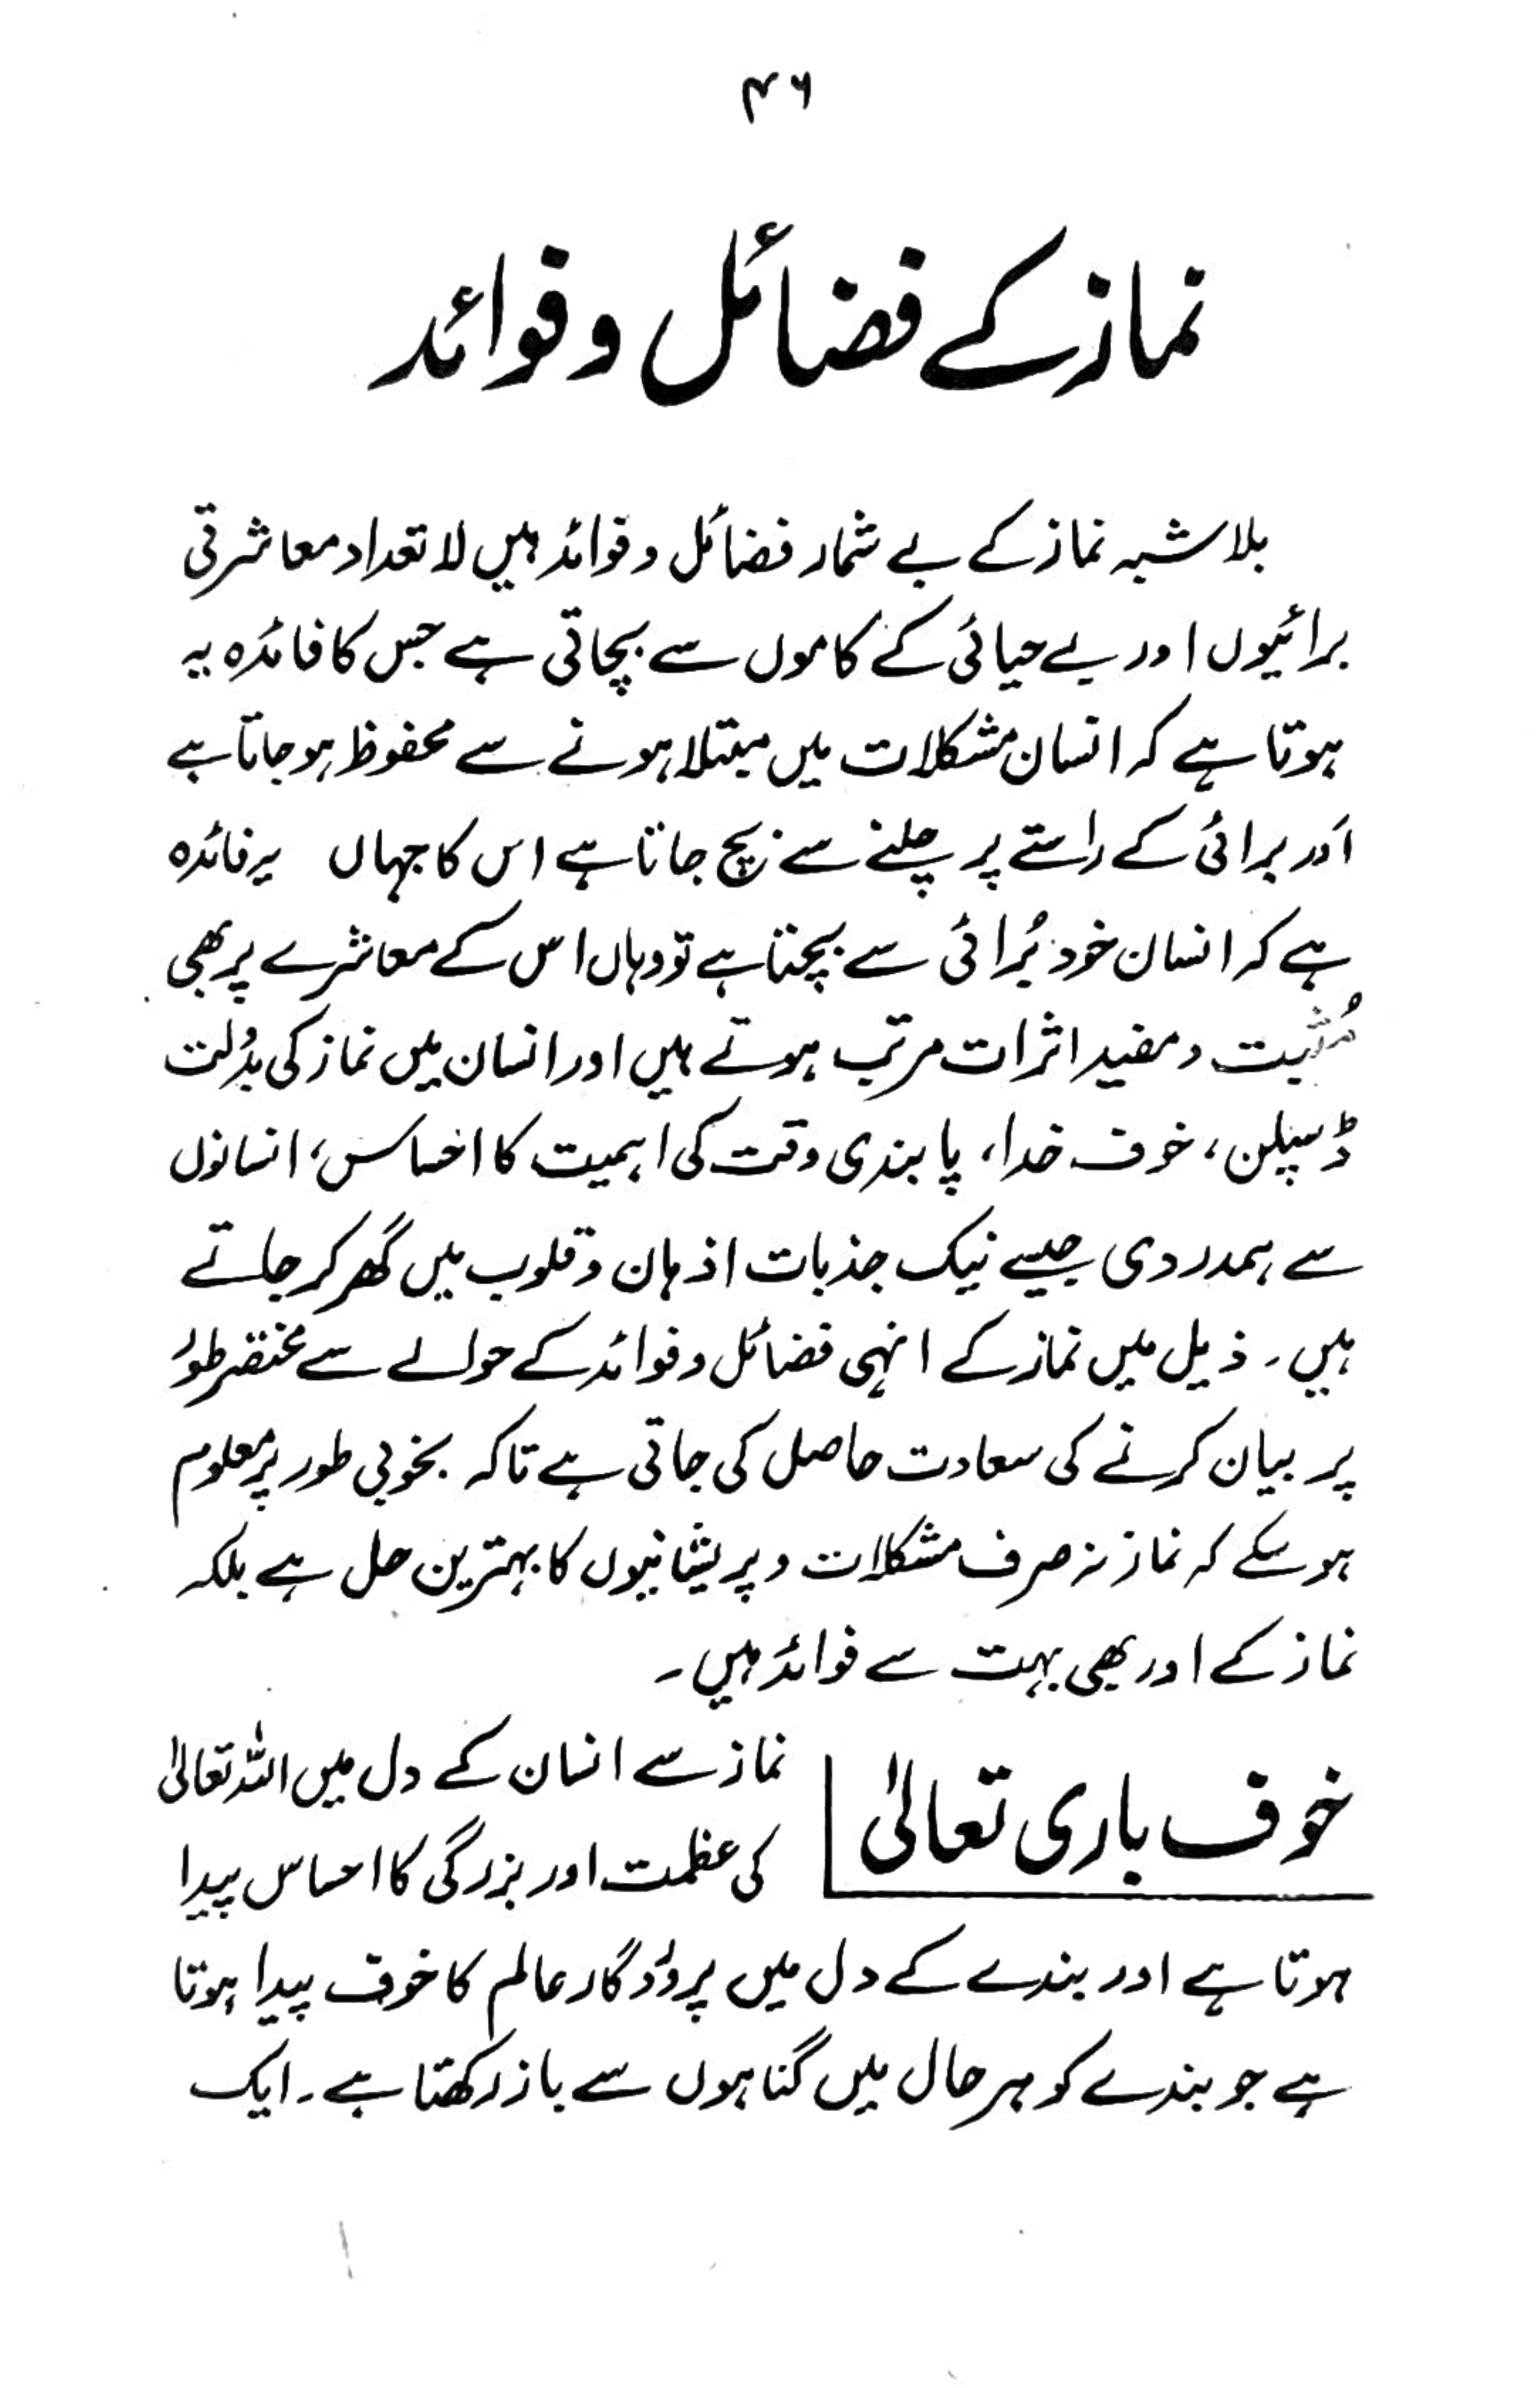 ۴۶
نماز کے فضائل و فوائد
بلاشبہ نماز کے بے شمار فضائل و فوائد ہیں لاتعداد معاشرتی
برائیوں اور بے حیائی کے کاموں سے بچاتی ہے جس کا فائدہ یہ
ہوتا ہے کہ انسان مشکلات میں مبتلا ہونے سے محفوظ ہو جاتا ہے
اور برائی کے راستے پر چلنے سے بچ جاتا ہے اس کا جہاں یہ فائدہ
ہے کہ انسان خود بُرائی سے بچتا ہے تو وہاں اس کے معاشرے پر بھی
مُثبت و مفید اثرات مرتب ہوتے ہیں اور انسان میں نماز کی بدولت
ڈسپلن، خوف خدا، پابندی وقت کی اہمیت کا احساس، انسانوں
سے ہمدردی جیسے نیک جذبات اذہان و قلوب میں گھر کر جاتے
ہیں۔ ذیل میں نماز کے انہی فضائل و فوائد کے حوالے سے مختصر طور
پر بیان کرنے کی سعادت حاصل کی جاتی ہے تاکہ بخوبی طور پر معلوم
ہو سکے کہ نماز نہ صرف مشکلات و پریشانیوں کا بہترین حل ہے بلکہ
نماز کے اور بھی بہت سے فوائد ہیں۔
خوف باری تعالیٰ
نماز سے انسان کے دل میں اللہ تعالیٰ
کی عظمت اور بزرگی کا احساس پیدا
ہوتا ہے اور بندے کے دل میں پروردگار عالم کا خوف پیدا ہوتا
ہے جو بندے کو ہر حال میں گناہوں سے باز رکھتا ہے۔ ایک